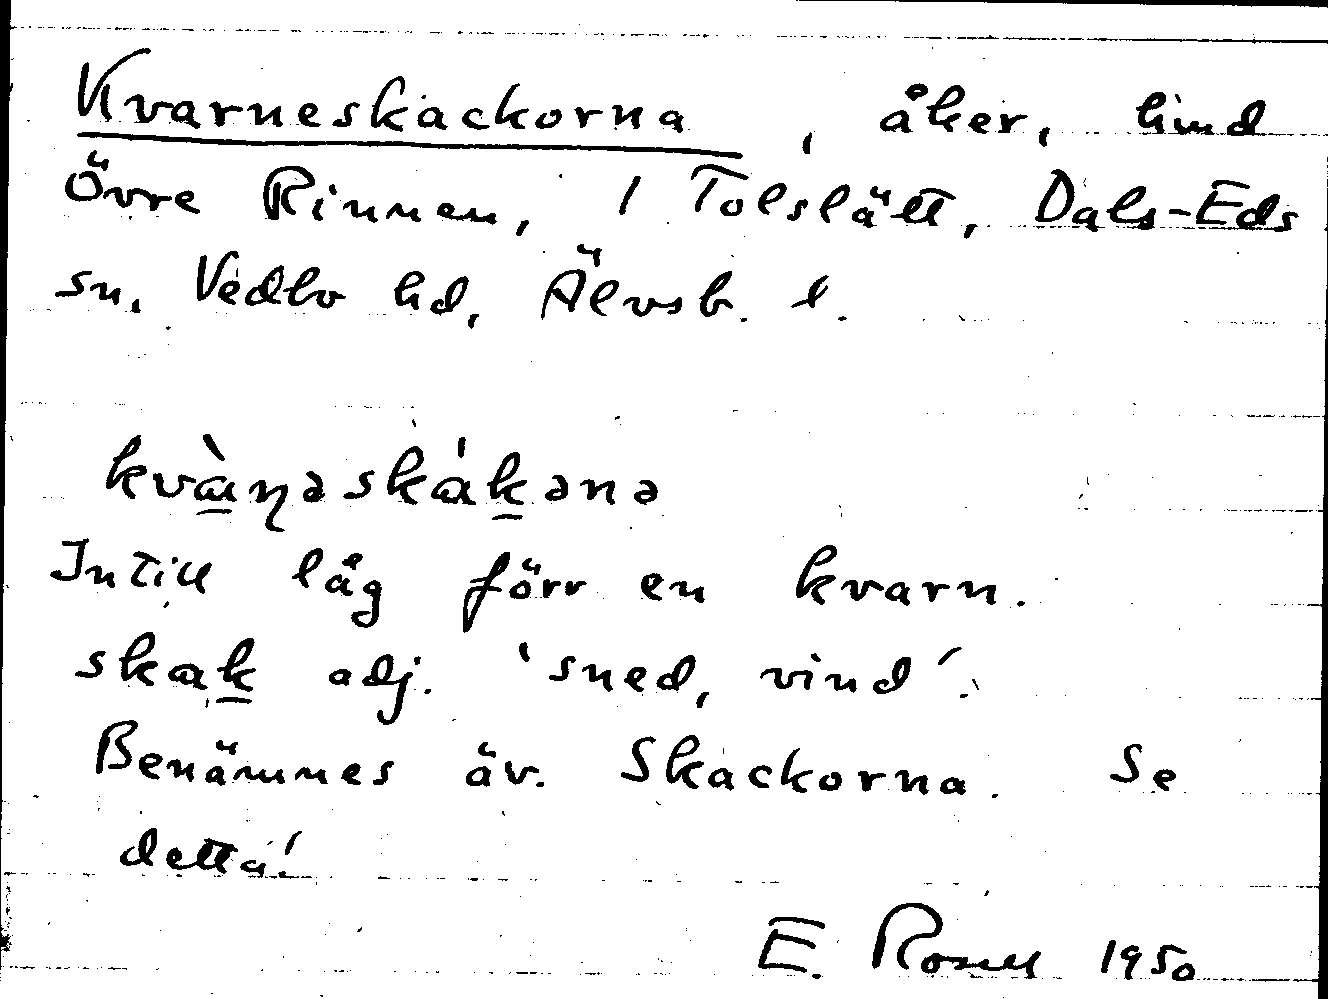 Kvarneskackorna, åker, hmd
Övre Rinnen, 1 Tolslätt, Dals-Eds
sn. Vedbo hd, Älvsb. l.
kvàɳəskákənə
Intill låg förr en kvarn.
skak adj. 'sned, vind'.
Benämnes äv. Skackorna. Se
detta!
E. Rosell 1950